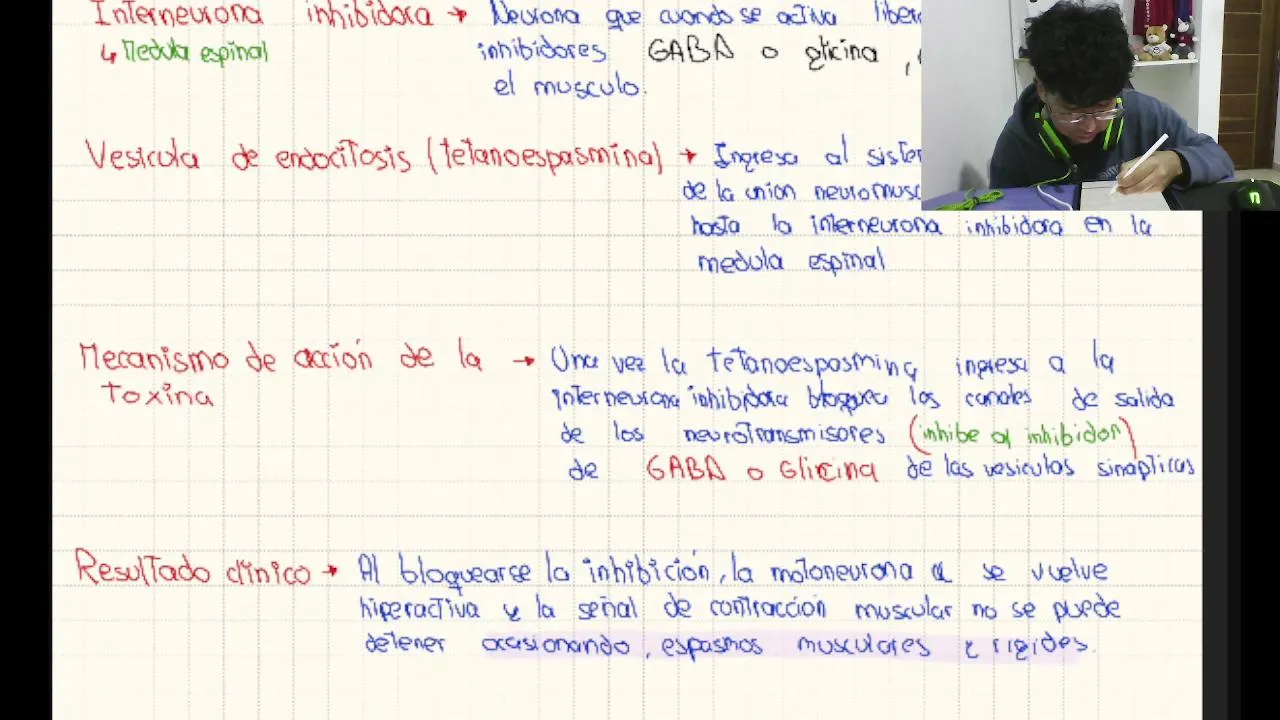 Interneurona inhibidora → Neurona que cuando se activa
↳ Medula espinal
inhibidores GABA o glicina,
el musculo.
Vesicula de endocitosis (tetanoespasmina) → Ingresa al
de la union
hasta la interneurona inhibidora en la
medula espinal
Mecanismo de acción de la toxina → Una vez la tetanoespasmina ingresa a la
interneurona inhibidora bloquea los canales de salida
de los neurotransmisores (inhibe al inhibidor)
de GABA o Glicina de las vesiculas sinapticas
Resultado clinico → Al bloquearse la inhibición, la motoneurona α se vuelve
hiperactiva y la señal de contraccion muscular no se puede
detener ocasionando, espasmos musculares y rigides.